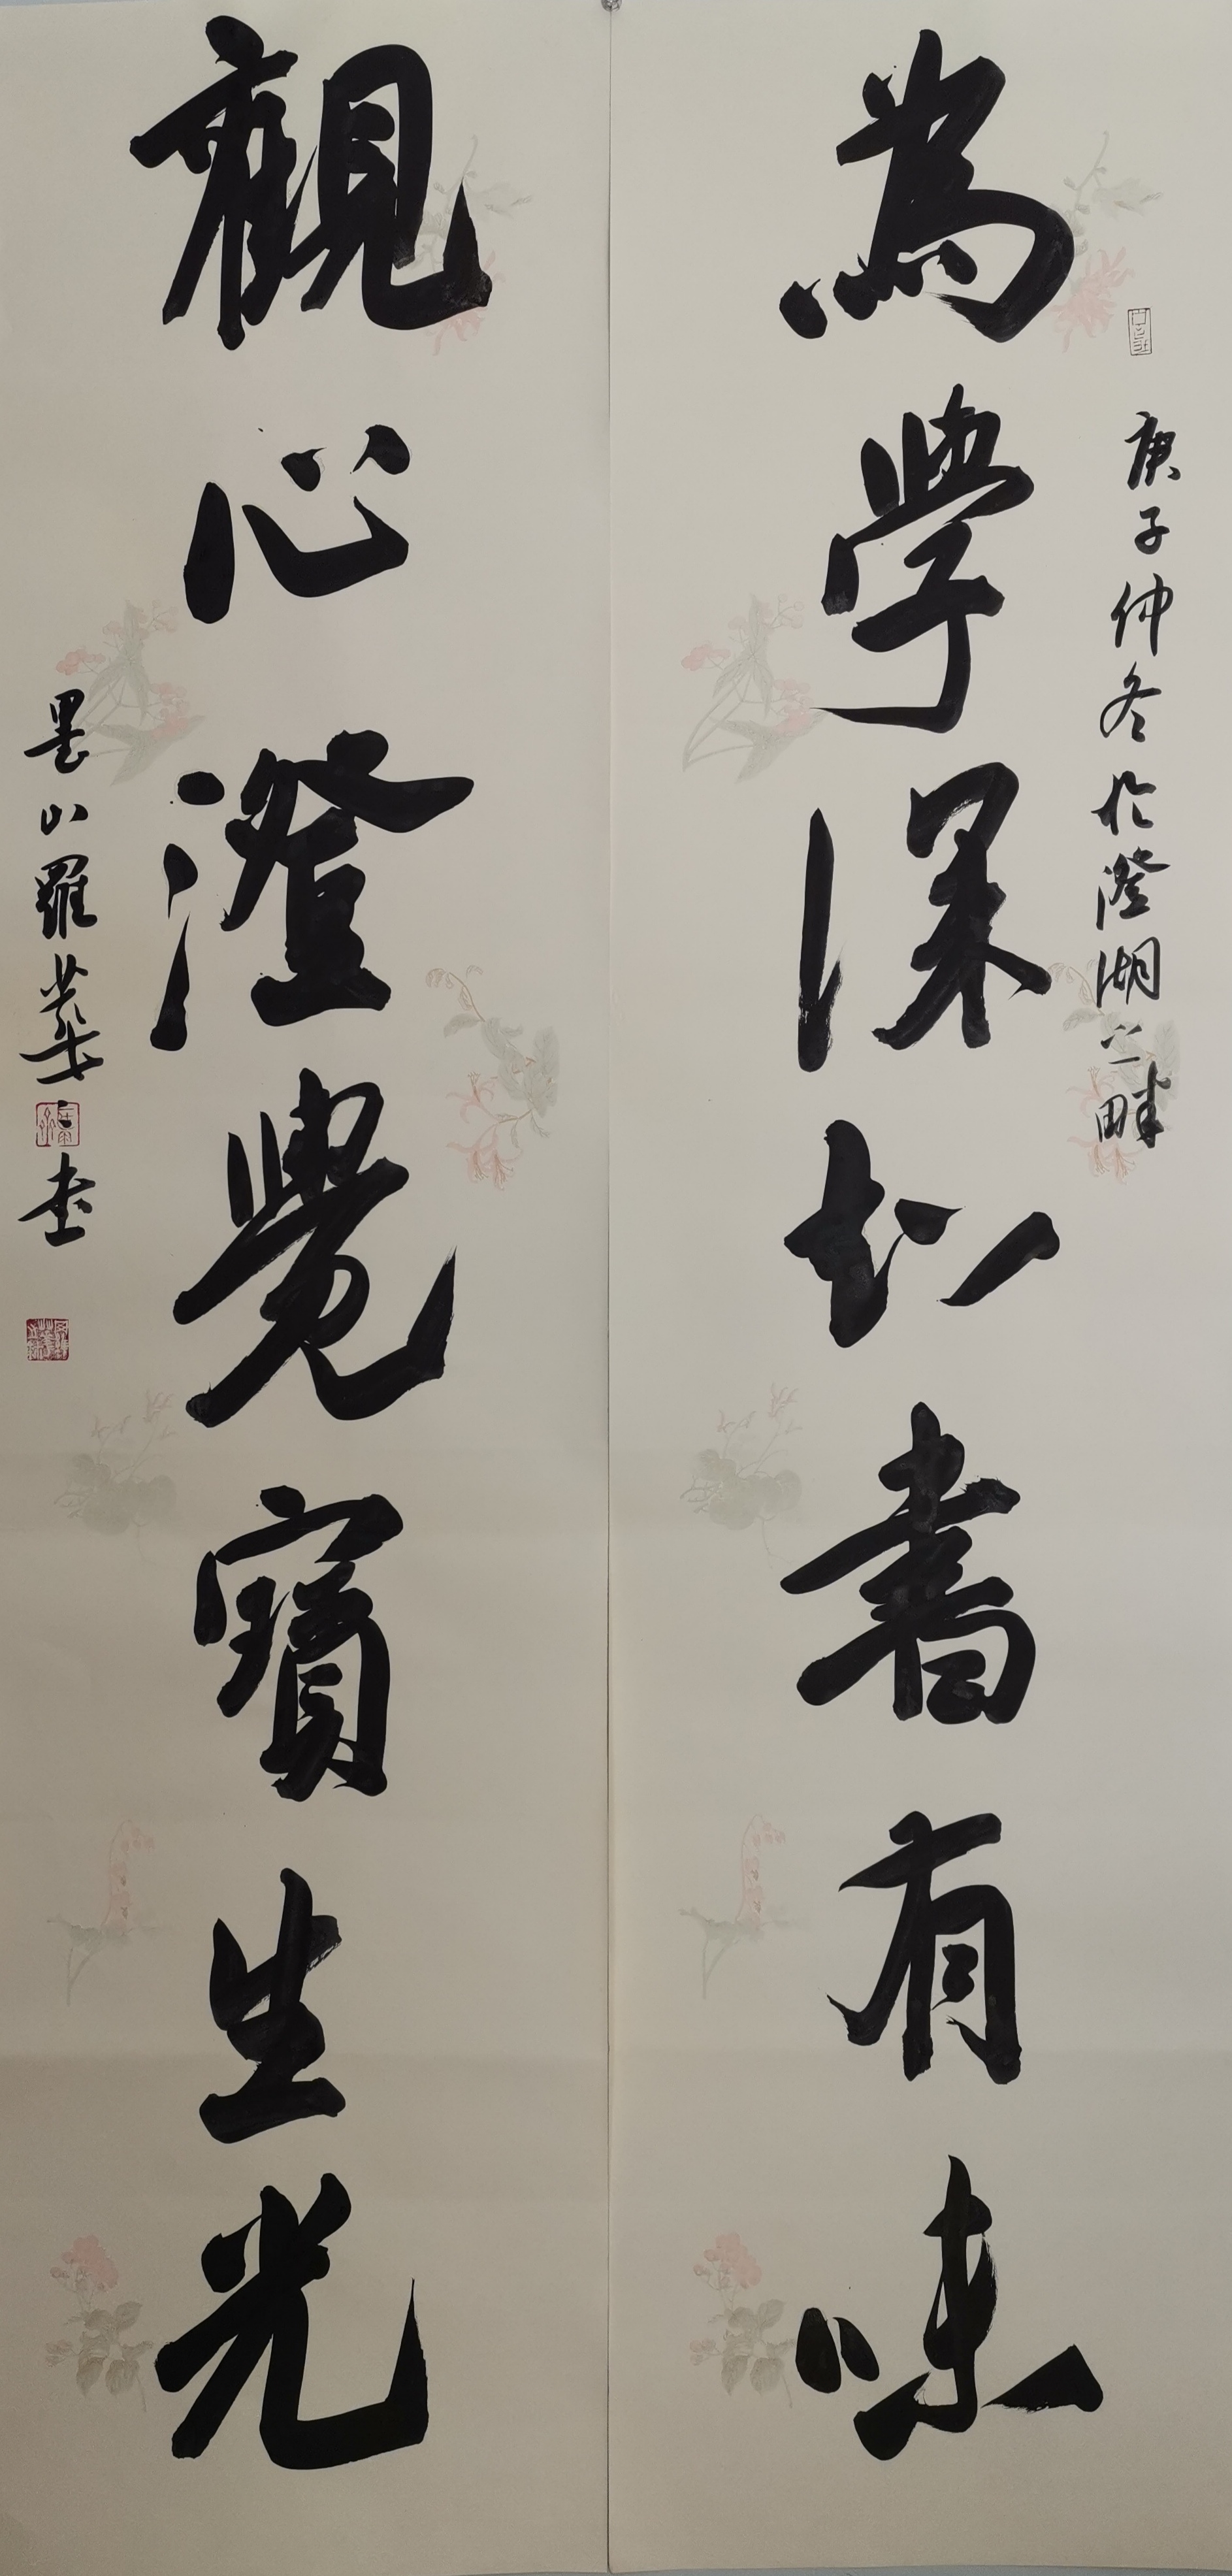 庚子仲冬於澄湖之畔
為學深知書有味
觀心澄覺寶生光
墨山羅